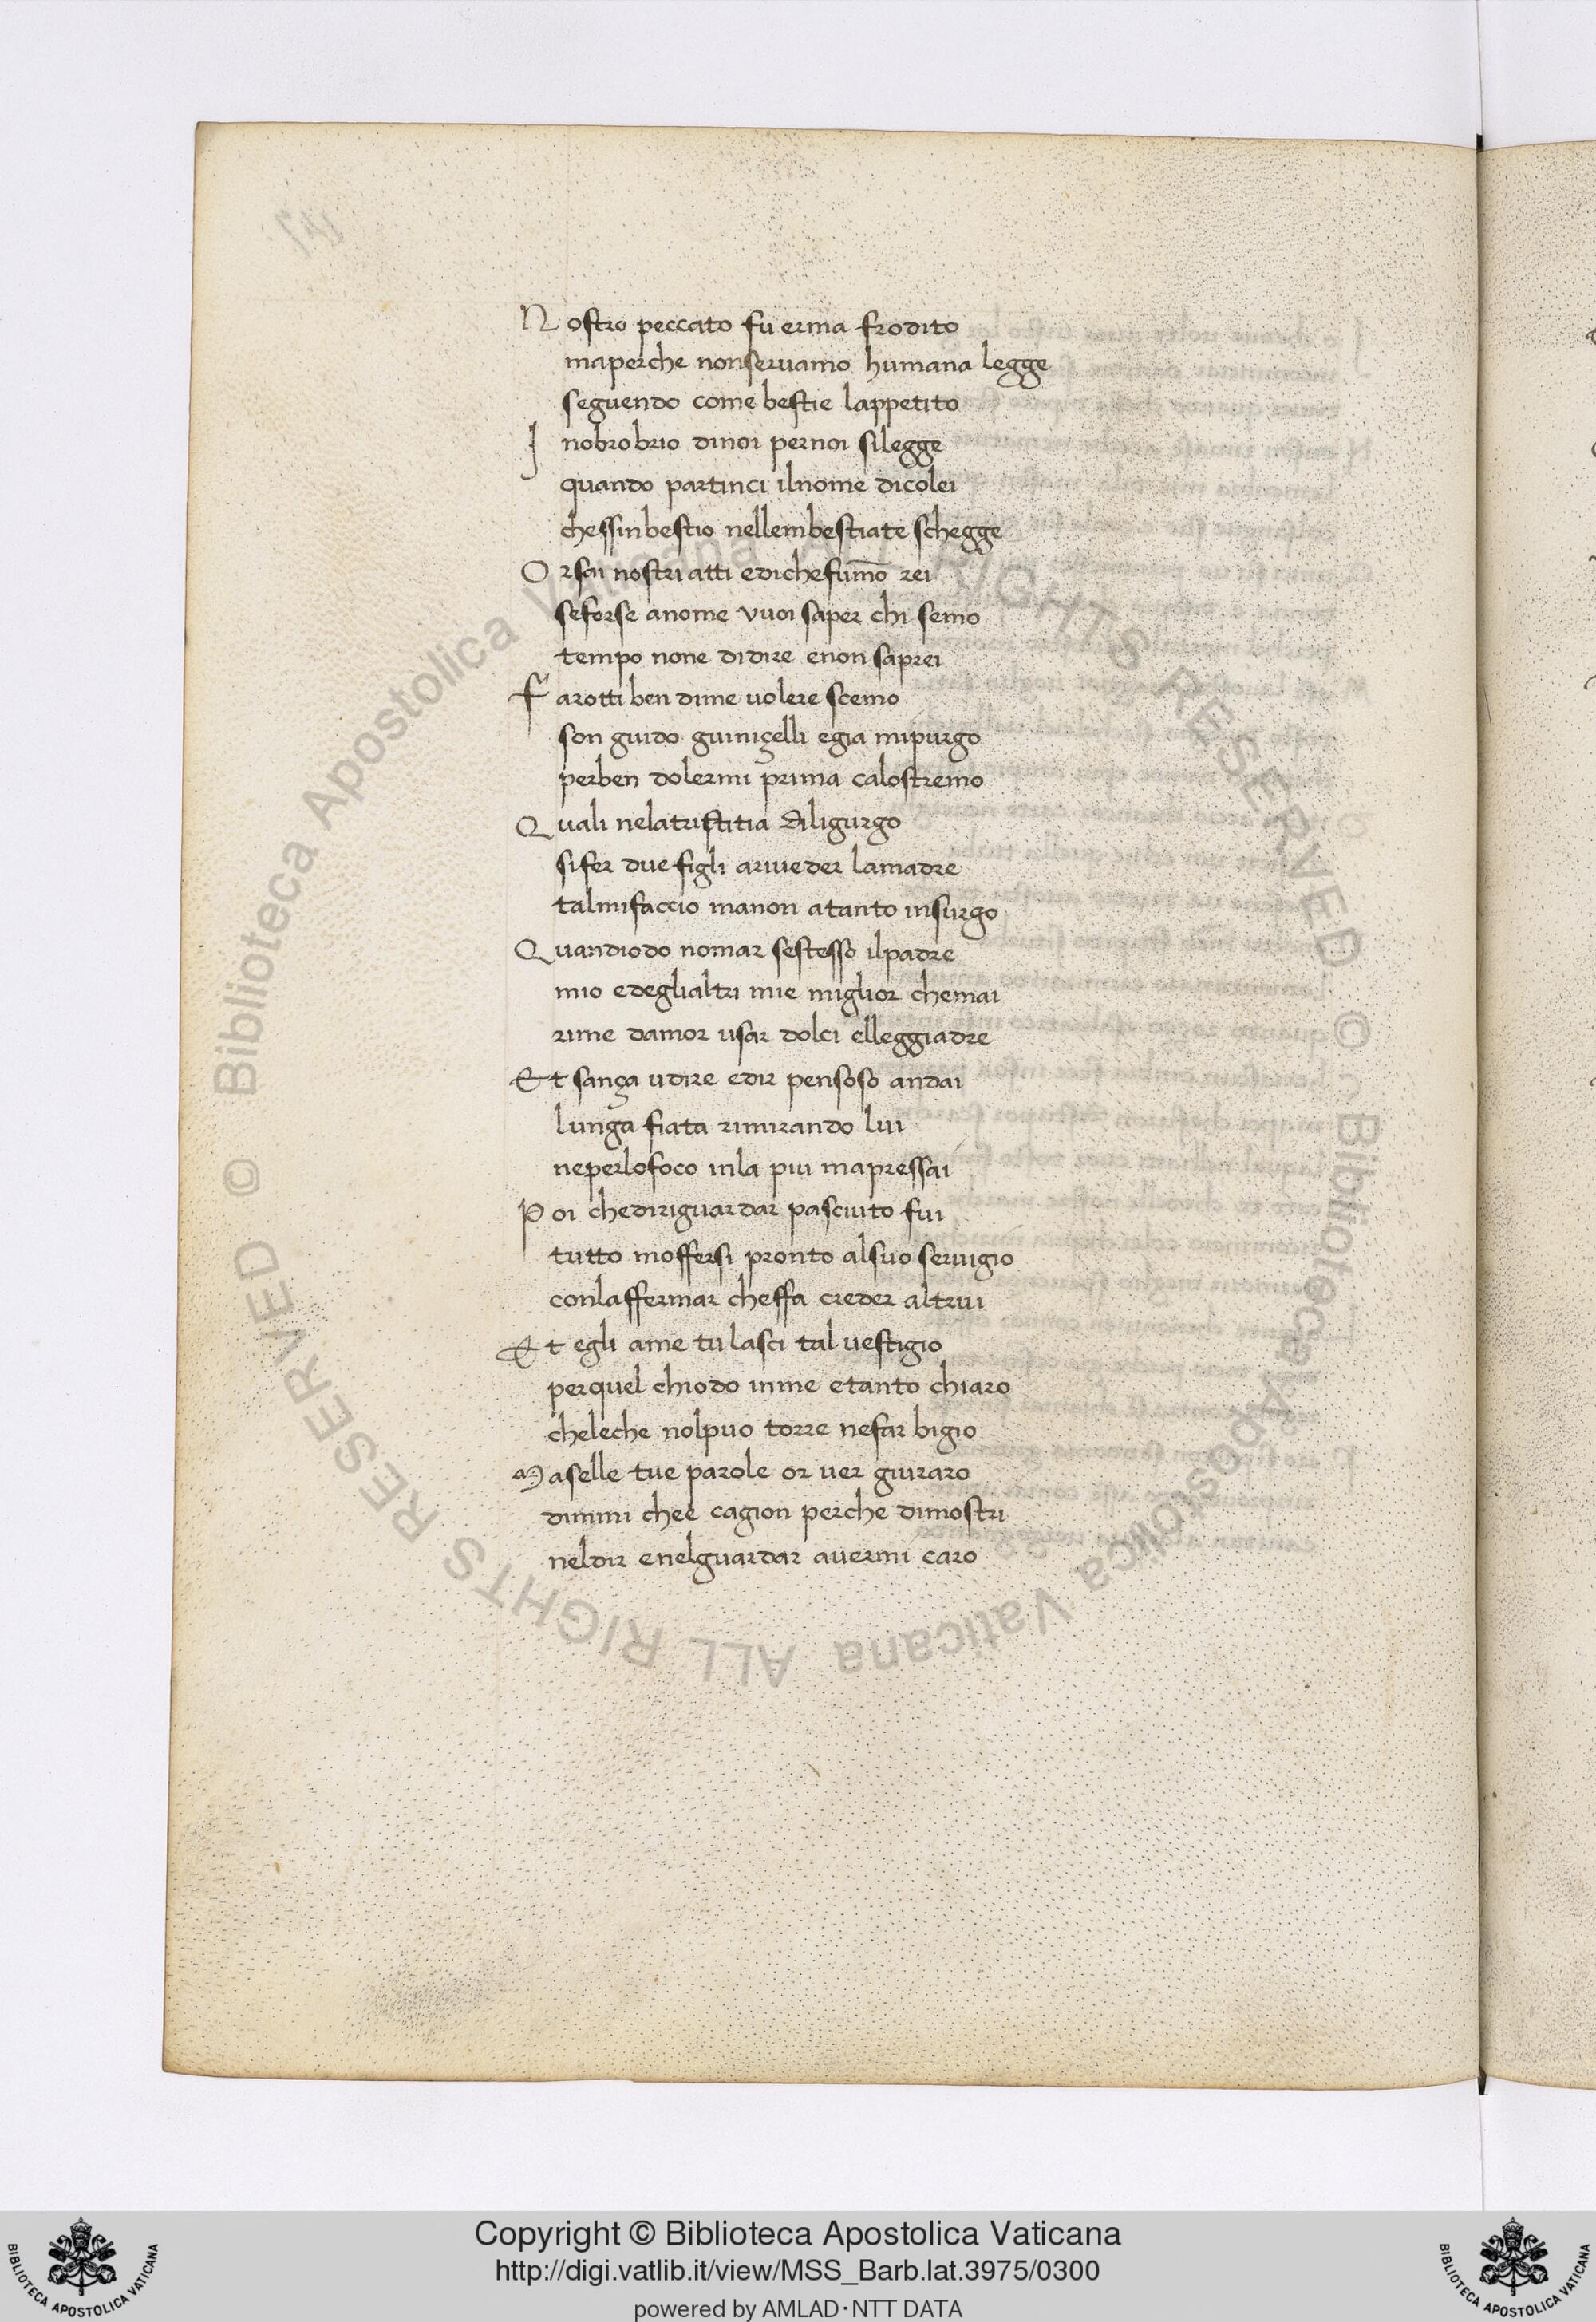 Nostro peccato fu erma frodito
maperche nonservamo humana legge
seguendo come bestie lappetito
Inobrobrio dinoi pernoi silegge
quando partinci ilnome dicolei
chessinbestio nellembestiate schegge
Orsai nostri atti edichefumō rei
seforse anome vuoi saper chi semo
tempo none didire enon saprei
Farotti ben dime volere scemo
son guido guiniçelli egia mipurgo
perben dolermi prima calostremo
Quali nelatristitia diligurgo
sifer due figli ariveder lamadre
talmifaccio manon atanto insurgo
Quandiodo nomar sestesso ilpadre
mio edeglialtri mie miglior chemai
rime damor usar dolci elleggiadre
Et sança udire edir pensoso andai
lunga fiata rimirando lui
neperlofoco inla piu mapressai
Poi chediriguardar pasciuto fui
tutto moffersi pronto alsuo servigio
conlaffermar cheffa creder altrui
Et egli ame tu lasci tal vestigio
perquel chiodo inme etanto chiaro
cheleche nolpuo torre nefar bigio
Maselle tue parole or ver giuraro
dimmi chee cagion perche dimostri
neldir enelguardar avermi caro
© Biblioteca Apostolica Vaticana ALL RIGHTS RESERVED © Biblioteca Apostolica Vaticana ALL RIGHTS RESERVED
BIBLIOTECA APOSTOLICA VATICANA
Copyright © Biblioteca Apostolica Vaticana
http://digi.vatlib.it/view/MSS_Barb.lat.3975/0300
powered by AMLAD·NTT DATA
BIBLIOTECA APOSTOLICA VATICANA